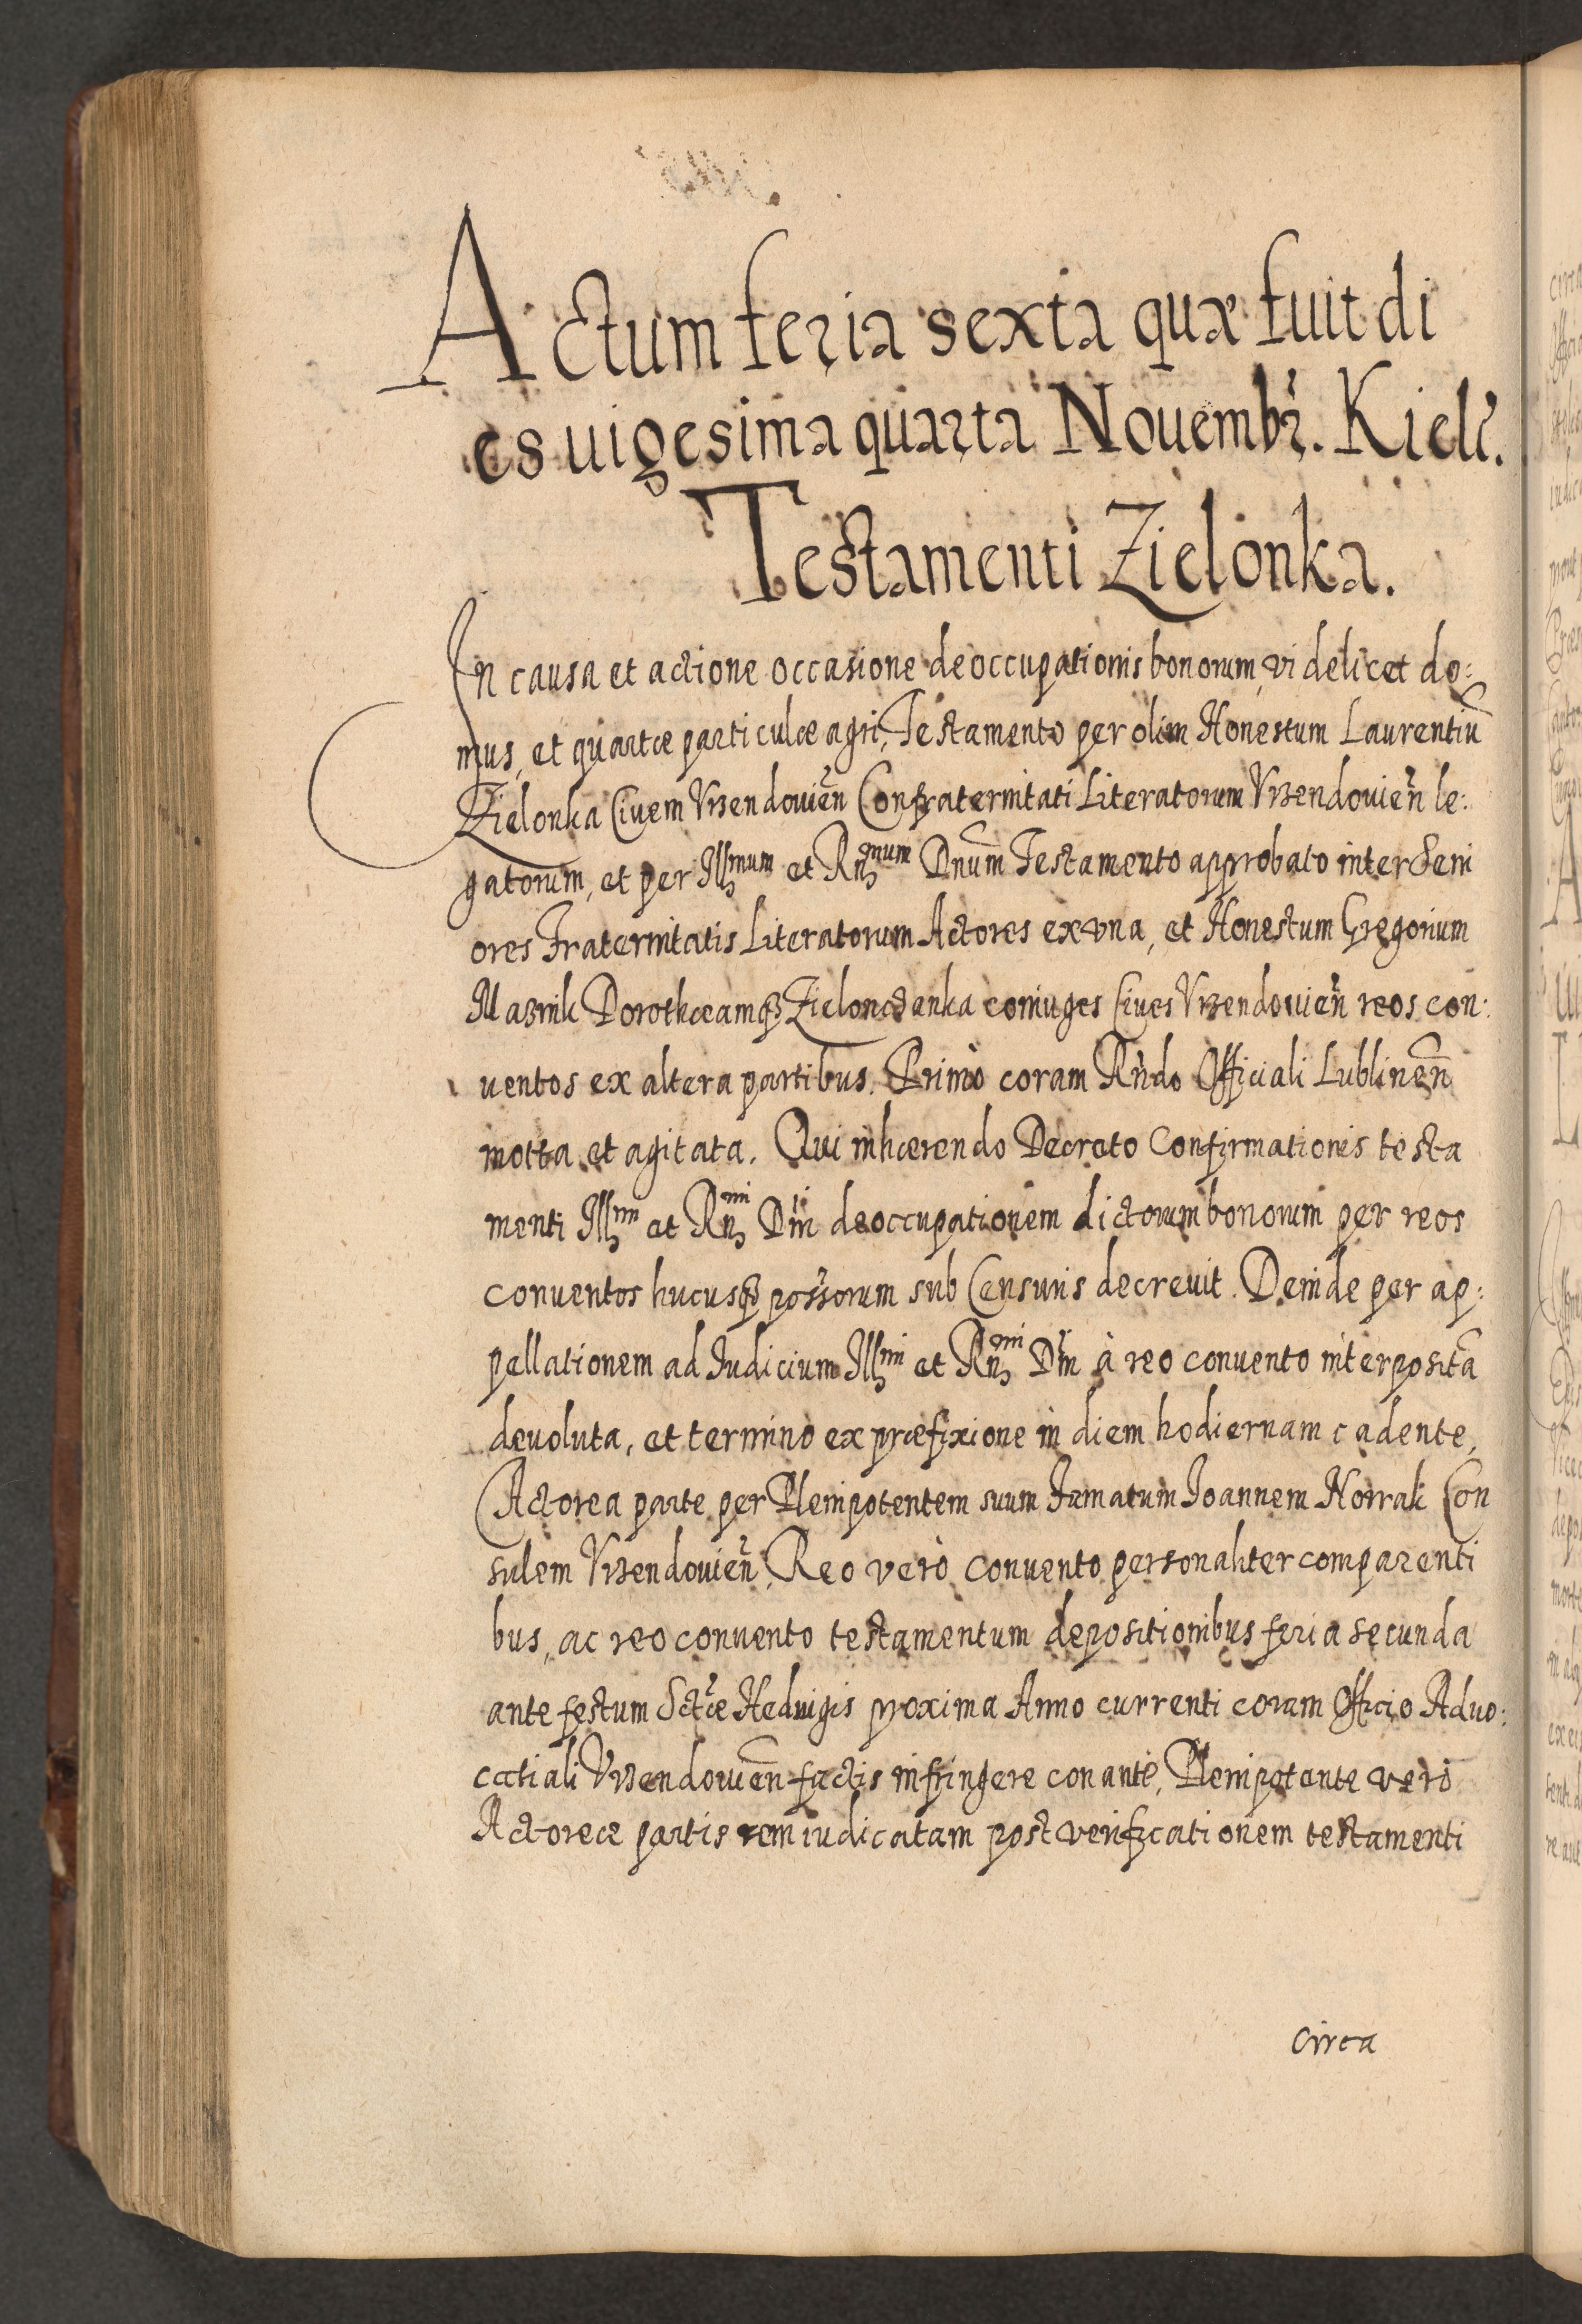 Actum feria sexta quæ fuit di
es uigesima quarta Nouembr̃. Kielc̃.
Testamenti Zielonka.
In causa et actione occasione deoccupationis bonorum, videlicet do:
mus, et quartæ particulæ agri, Testamento per olim Honestum Laurentiũ
Zielonka Civem Vrzendouieñ Confraternitati Literatorum Vrzendouieñ le:
gatorum, et per Illmum et Rñmum Dnum Testamento approbato inter Seni
ores Fraternitatis Literatorum Actores ex vna, et Honestum Gregorium
Maznik Dorotheamqꝫ Zielonczanka coniuges Ciues Vrzendouieñ reos con:
uentos ex altera partibus. Primò coram Rñdo Officiali Lublineñ
motta et agitata. Qui inhærendo Decreto Confirmationis testa
menti Illmi et Rñmi Dñi deoccupationem dictorum bonorum per reos
conuentos hucusqꝫ possorum sub Censuris decreuit. Deinde per ap:
pellationem ad Iudicium Illmi et Rñmi Dñi à reo conuento interpositã
deuoluta, et termino ex præfixione in diem hodiernam cadente,
Actorea parte per Plenipotentem suum Famatum Ioannem Norrak Con
sulem Vrzendouieñ, Reo verò conuento personaliter comparenti
bus, ac reo conuento testamentum depositionibus feria secunda
ante festum Sctæ Heduigis proxima Anno currenti coram Officio Aduo:
catiali Vrzendouieñ factis infringere conante, Plenipotente verò
Actoreæ partis rem iudicatam post verificationem testamenti
circa